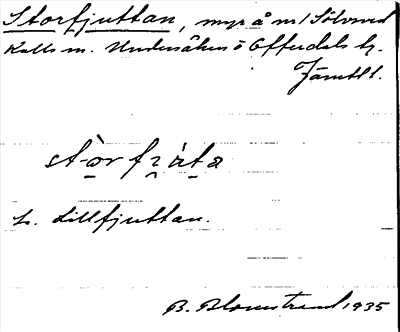 Storfjuttan, myr å m/ Sölvsved
Kalls m. Undersåkers o Offerdals tg.
Jämtl.
stòrfjùta
L. Lillfjuttan.
B. Blomstrand 1935